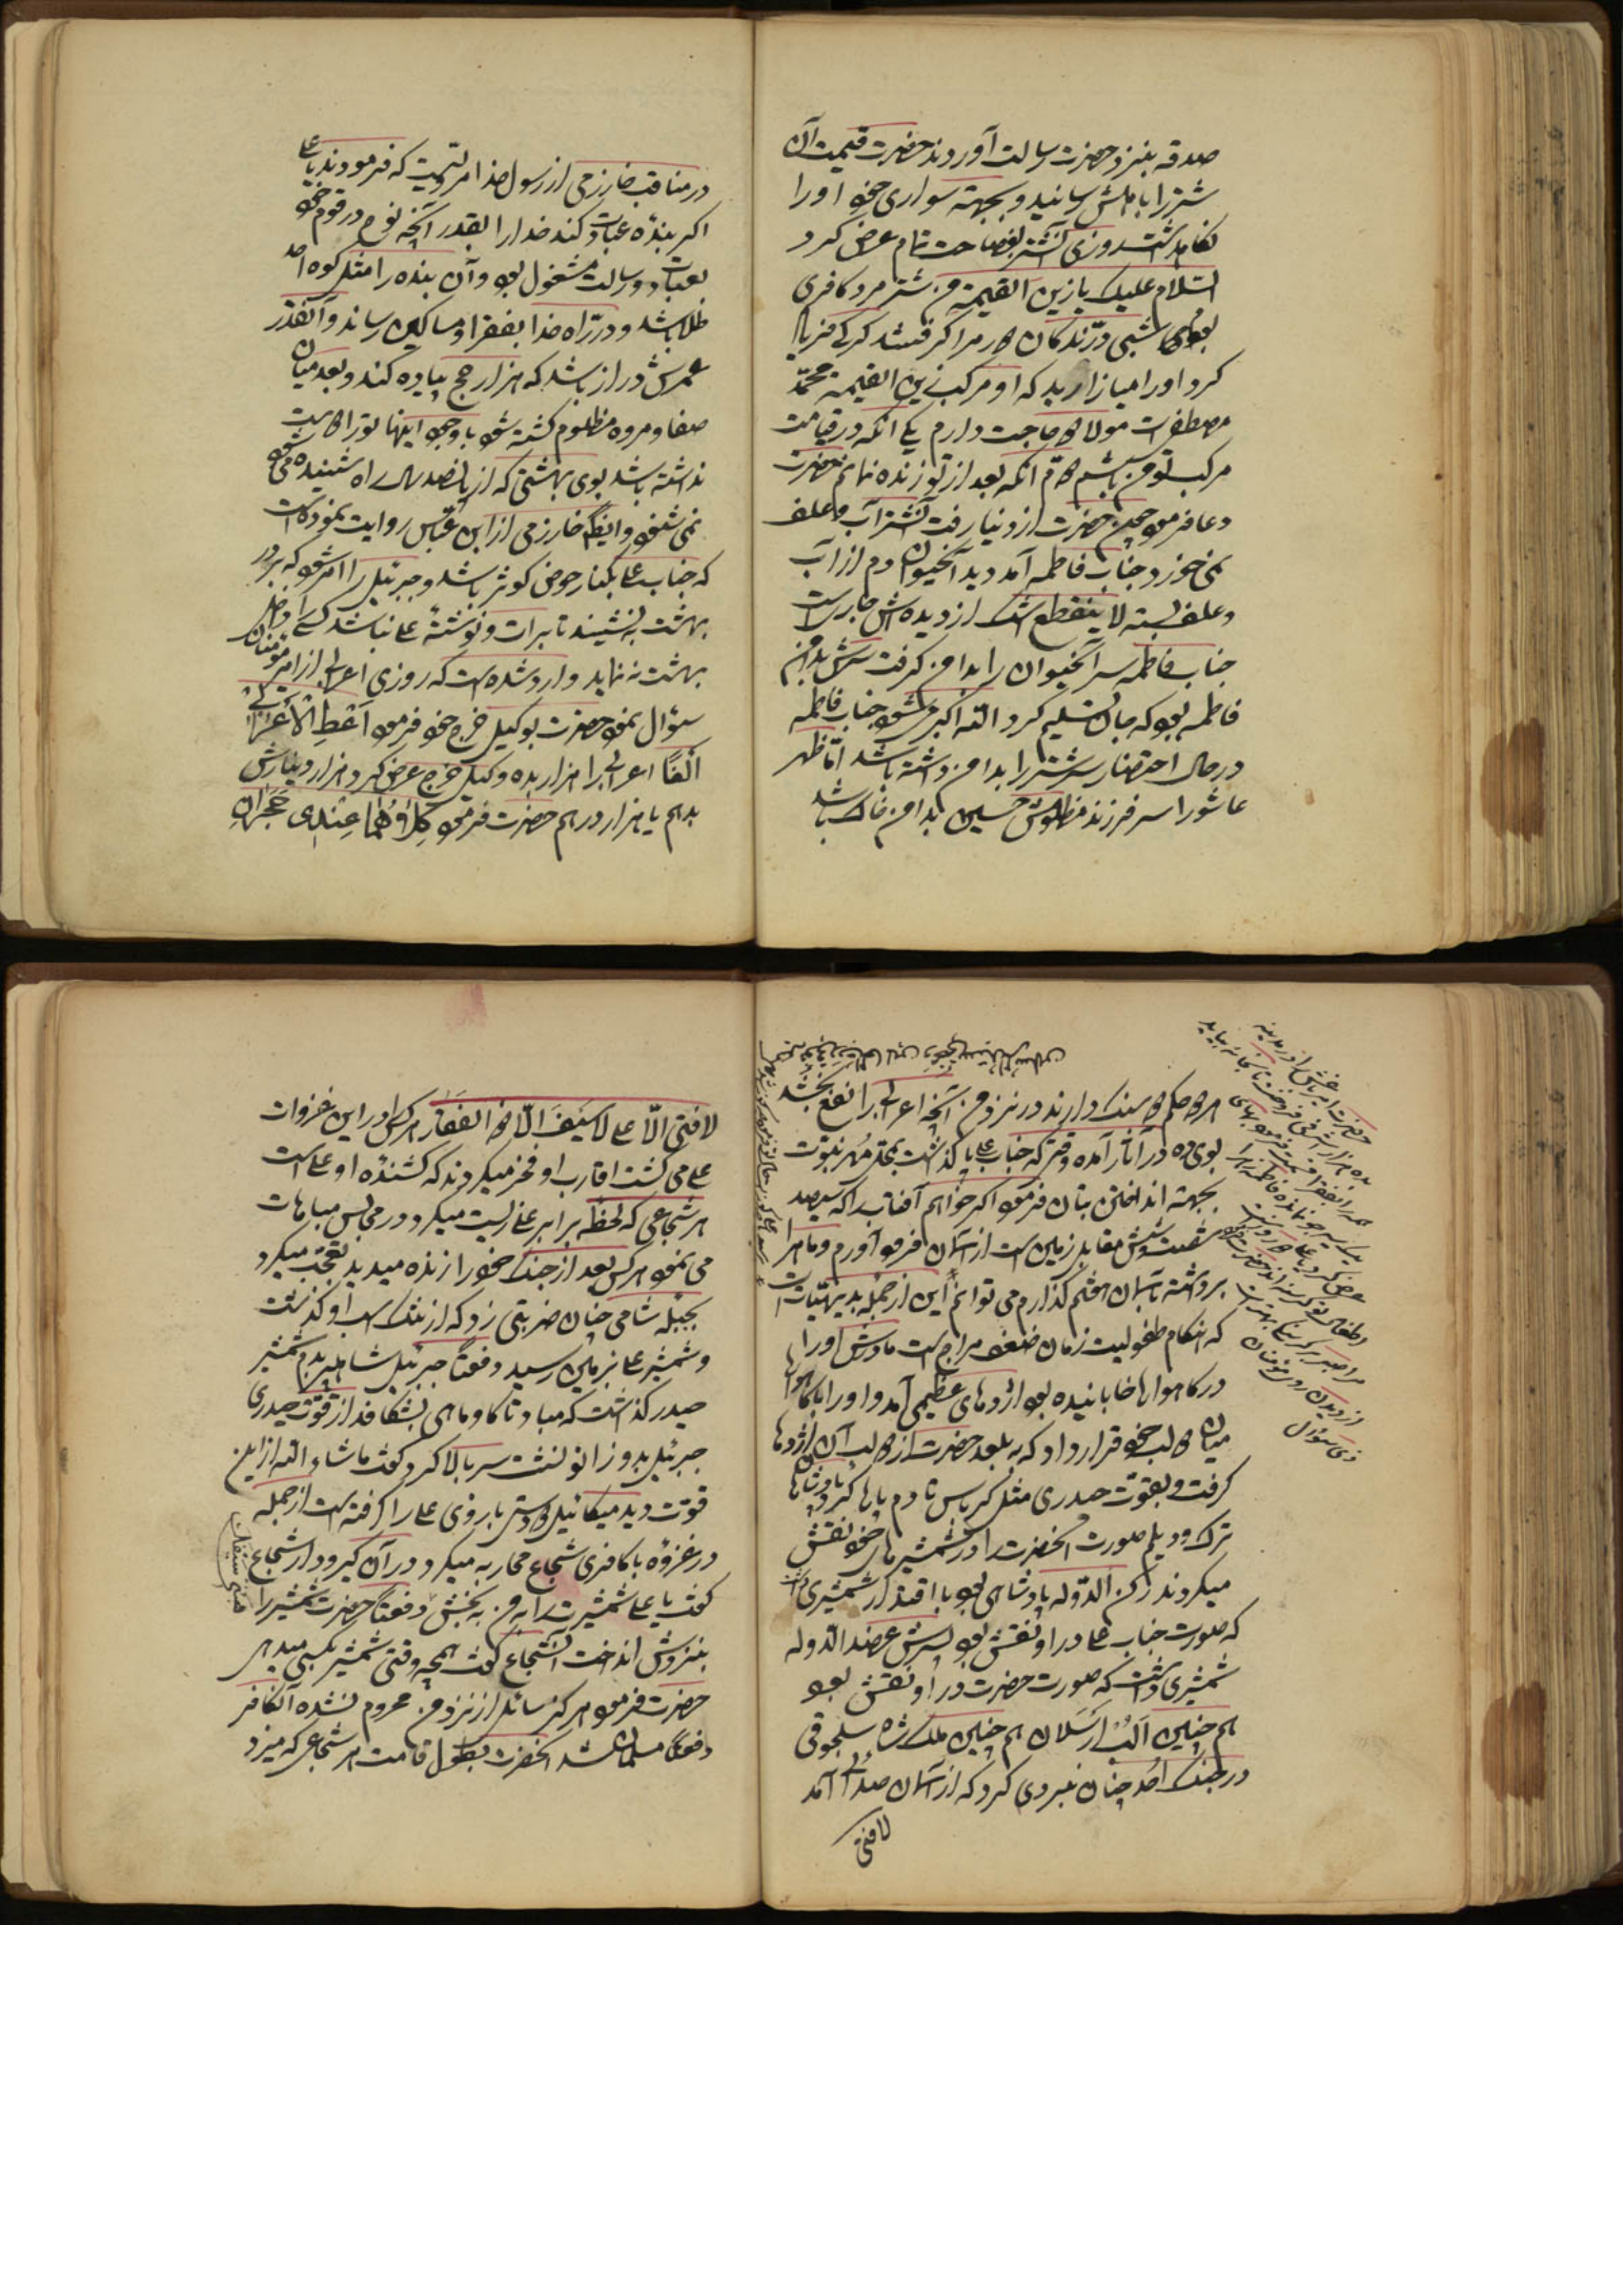 صدقه بنزد حضرت رسالت آوردند حضرت قیمت آن
شتر را باهلش رسانید و بجهته سواری خود او را
نکاهداشت روزی آنشتر بفصاحت تمام عرض کرد
السّلام علیک یا زین القیمة من شتر مرد کافری
بودم شبی درندکان دور مرا کرفتند کرکی فریاد
کرد او را میازارید که او مرکب زین القیمة محمّد
مصطفی است مولای دو حاجت دارم یکی انکه در قیامت
مرکب تو من باشم دوّم انکه بعد از تو زنده نمانم حضرت
دعا فرمود چون حضرت از دنیا رفت آنشتر آب و علف
نمی خورد جناب فاطمه آمد دید آنحیوان دم از آب
و علف بسته لا ینقطع اشک از دیده اش جاریست
جناب فاطمه سر آنحیوان را بدامن کرفت سرش بدامن
فاطمه بود که جان تسلیم کرد الله اکبر میشود جناب فاطمه
در حال احتضار سر شتر را بدامن داشته باشد امّا ظهر
عاشورا سر فرزند مظلومش حسین بدامن خاک باشد
در مناقب خارزمی از رسول خدا مرویست که فرمودند یا علی
اکر بندهٔ عبادت کند خدا را بقدر آنچه نوح در قوم خود
بعبادت و رسالت مشغول بود و آن بنده را مثل کوه احد
طلا باشد و در راه خدا بفقرا و مساکین رساند و آنقدر
عمرش دراز باشد که هزار حج پیاده کند و بعد میان
صفا و مروه مظلوم کشته شود با وجود اینها تو را دوست
نداشته باشد بوی بهشتی که از پانصد ساله راه شنیده می شود
نمی شنود و ایضا خارزمی از ابن عبّاس روایت نموده است
که جناب علی بکنار حوض کوثر باشد و جبرئیل را امر شود که بر در
بهشت بنشیند تا برات و نوشتهٔ علی نباشد کسی را داخل
بهشت ننماید وارد شده است که روزی اعرابی از امیر مؤمنان
سؤال نمود حضرت بوکیل خرج خود فرمود اَعْطِ الْاَعْرابیّ
اَلْفًا اعرابی را هزار بده وکیل خرج عرض کرد هزار دینارش
بدهم یا هزار درهم حضرت فرمود کِلاهُما عِنْدی حَجَرانِ
هر دو حکم دو سنک دارند در نزد من آنچه اعرابی را نفع بخشد
بوی ده در آثار آمده وقتی که جناب علی پا کذاشت بمهر نبوّت
بجهته انداختن بتان فرمود اکر خواهم آفتاب را که سیصد
شصت و شش مقابل زمین است از آسمان فرود آورم و ماه را
برداشته بآسمان هفتم کذارم می توانم این از جمله بدیهیّات است
که هنکام طفولیت زمان ضعف مزاج است مادرش او را
در کاهواره خابانیده بود اژدهای عظیمی آمد و او را با کاهواره
میان دو لب خود قرار داد که ببلعد حضرت از دو لب آن اژدها
کرفت و بقوّت حیدری مثل کرباس تا دم پاره کرد پادشاهان
ترک و دیلم صورت آنحضرت را در شمشیرهای خود نقش
میکردند رکن الدّوله پادشاهی بود با اقتدار شمشیری داشت
که صورت جناب علی در او نقش بود پسرش عضد الدّوله
شمشیری داشت که صورت حضرت در او نقش بود
هم چنین اَلْب اَرسَلان هم چنین ملک شاه سلجوقی
در جنک اُحُد چنان نبردی کرد که از آسمان صدائی آمد
لا فتی
لا فَتی الّا علی لا سَیفَ الّا ذو الفَقار هر کس را در این غزوات
علی می کشت اقارب او فخر میکردند که کشندهٔ او علی است
هر شجاعی که لحظهٔ برابر علی زیست میکرد در مجالس مباهات
می نمود هر کس بعد از جنک خود را زنده میدید تعجّب میکرد
بجبلهٔ شامی چنان ضربتی زد که از تنک اسب او کذشت
و شمشیر علی بزمین رسید دفعتًا جبرئیل شاهپر بدم شمشیر
حیدر کذاشت که مبادا کاو و ماهی بشکافد از قوّت حیدری
جبرئیل بدو زانو نشست سر بالا کرد کفت ماشاء الله از این
قوّت دید میکائیل دو دستی بازوی علی را کرفته است از جمله
در غزوهٔ با کافری شجاع محاربه میکرد در آن کیرودار شجاع
کفت یا علی شمشیرت را بمن به بخش دفعتًا حضرت شمشیر را
بنزدش انداخت آنشجاع کفت همچه وقتی شمشیر بکسی میدهی
حضرت فرمود هرکز سائل از نزد من محروم نشده آنکافر
دفعتًا مسلمان شد آنحضرت بطول قامت هر شجاعی که میزد